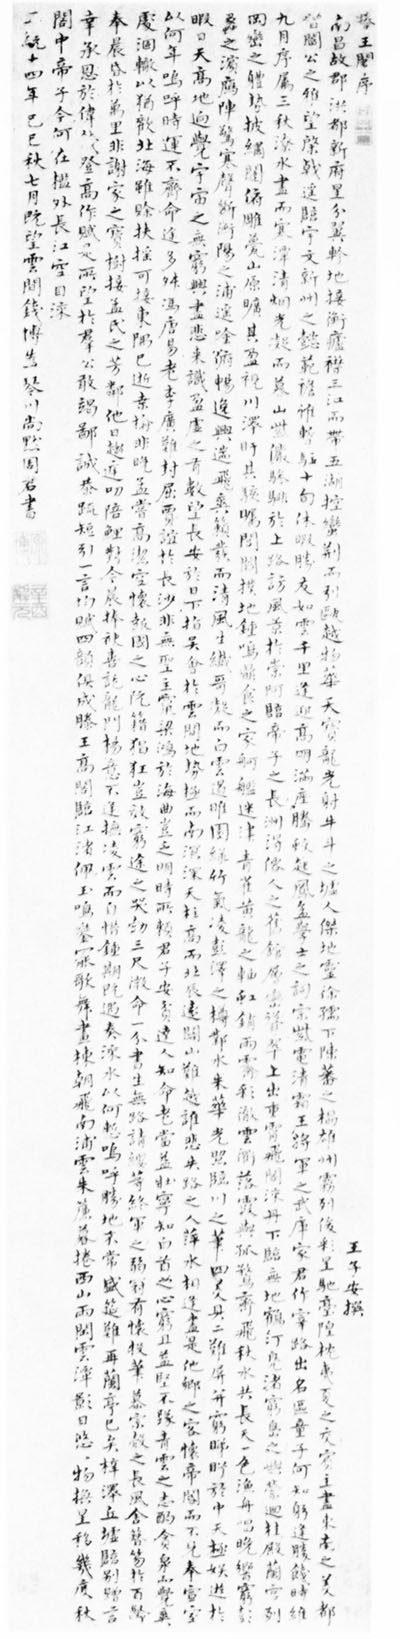 滕王閣序
王子安撰
南昌故郡洪都新府星分翼軫地接衡廬襟三江而帶五湖控蠻荊而引甌越物華天寶龍光射牛斗之墟人傑地靈徐孺下陳蕃之榻雄州霧列俊彩星馳臺隍枕夷夏之交賓主盡東南之美都
督閻公之雅望棨戟遙臨宇文新州之懿範襜帷暫駐十旬休暇勝友如雲千里逢迎高朋滿座騰蛟起鳳孟學士之詞宗紫電清霜王將軍之武庫家君作宰路出名區童子何知躬逢勝餞時維
九月序屬三秋潦水盡而寒潭清烟光凝而暮山紫儼驂騑於上路訪風景於崇阿臨帝子之長洲得僊人之舊館層巒聳翠上出重霄飛閣流丹下臨無地鶴汀鳧渚窮島嶼之縈迴桂殿蘭宮列
岡巒之體勢披繡闥俯雕甍山原曠其盈視川澤盱其駭矚閭閻撲地鍾鳴鼎食之家舸艦迷津青雀黃龍之軸虹銷雨霽彩徹雲衢落霞與孤鶩齊飛秋水共長天一色漁舟唱晚響窮彭
蠡之濱鴈陣驚寒聲斷衡陽之浦遙吟俯暢逸興遄飛爽籟發而清風生纖歌凝而白雲遏睢園綠竹氣凌彭澤之樽鄴水朱華光照臨川之筆四美具二難并窮睇眄於中天極娛遊於
暇日天高地迥覺宇宙之無窮興盡悲來識盈虛之有數望長安於日下指吳會於雲間地勢極而南溟深天柱高而北辰遠關山難越誰悲失路之人萍水相逢盡是他鄉之客懷帝閽而不見奉宣室
以何年嗚呼時運不齊命途多舛馮唐易老李廣難封屈賈誼於長沙非無聖主竄梁鴻於海曲豈乏明時所賴君子安貧達人知命老當益壯寧知白首之心窮且益堅不墜青雲之志酌貪泉而覺爽
處涸轍以猶歡北海雖賒扶搖可接東隅已逝桑榆非晚孟嘗高潔空懷報國之心阮籍猖狂豈效窮途之哭勃三尺微命一介書生無路請纓等終軍之弱冠有懷投筆慕宗慤之長風舍簪笏於百齡
奉晨昏於萬里非謝家之寶樹接孟氏之芳鄰他日趨庭叨陪鯉對今晨捧袂喜託龍門楊意不逢撫凌雲而自惜鍾期既遇奏流水以何慙嗚呼勝地不常盛筵難再蘭亭已矣梓澤丘墟臨別贈言
幸承恩於偉餞登高作賦是所望於羣公敢竭鄙誠恭疏短引一言均賦四韻俱成滕王高閣臨江渚佩玉鳴鑾罷歌舞畫棟朝飛南浦雲朱簾暮捲西山雨閒雲潭影日悠悠物換星移幾度秋
閣中帝子今何在檻外長江空自流
正統十四年己巳秋七月既望雲間錢博為琴川尚點周君書